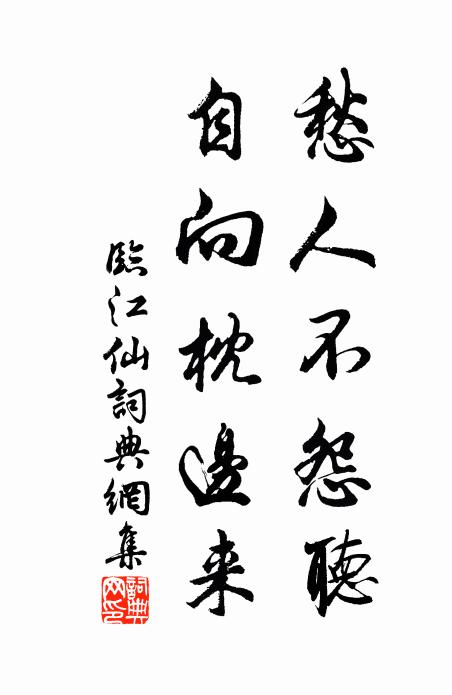 愁人不怨聽
自向枕邊来
臨江仙詞典網集
詞典網印